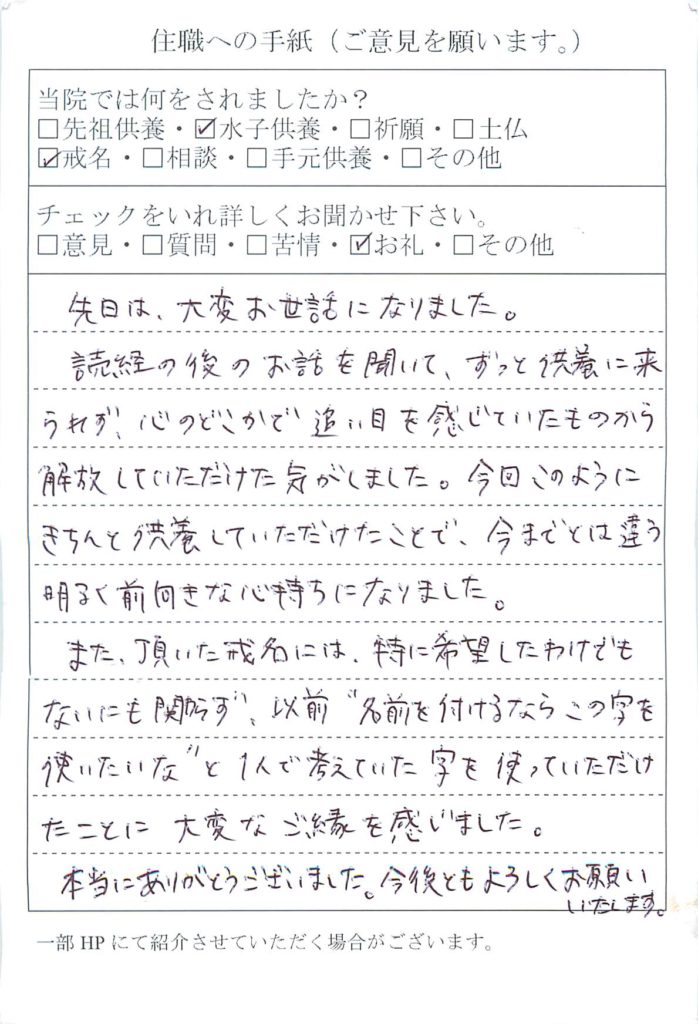 住職への手紙（ご意見を願います。）
当院では何をされましたか？
□先祖供養・☑水子供養・□祈願・□土仏
☑戒名・□相談・□手元供養・□その他
チェックをいれ詳しくお聞かせ下さい。
□意見・□質問・□苦情・☑お礼・□その他
先日は、大変お世話になりました。
読経の後のお話を聞いて、ずっと供養に来
られず、心のどこかで追い目を感じていたものから
解放していただけた気がしました。今回このように
きちんと供養していただけたことで、今までとは違う
明るく前向きな心持ちになりました。
また、頂いた戒名には、特に希望したわけでも
ないにも関わらず、以前“名前を付けるならこの字を
使いたいな”と1人で考えていた字を使っていただけ
たことに大変なご縁を感じました。
本当にありがとうございました。今後ともよろしくお願い
いたします。
一部HPにて紹介させていただく場合がございます。